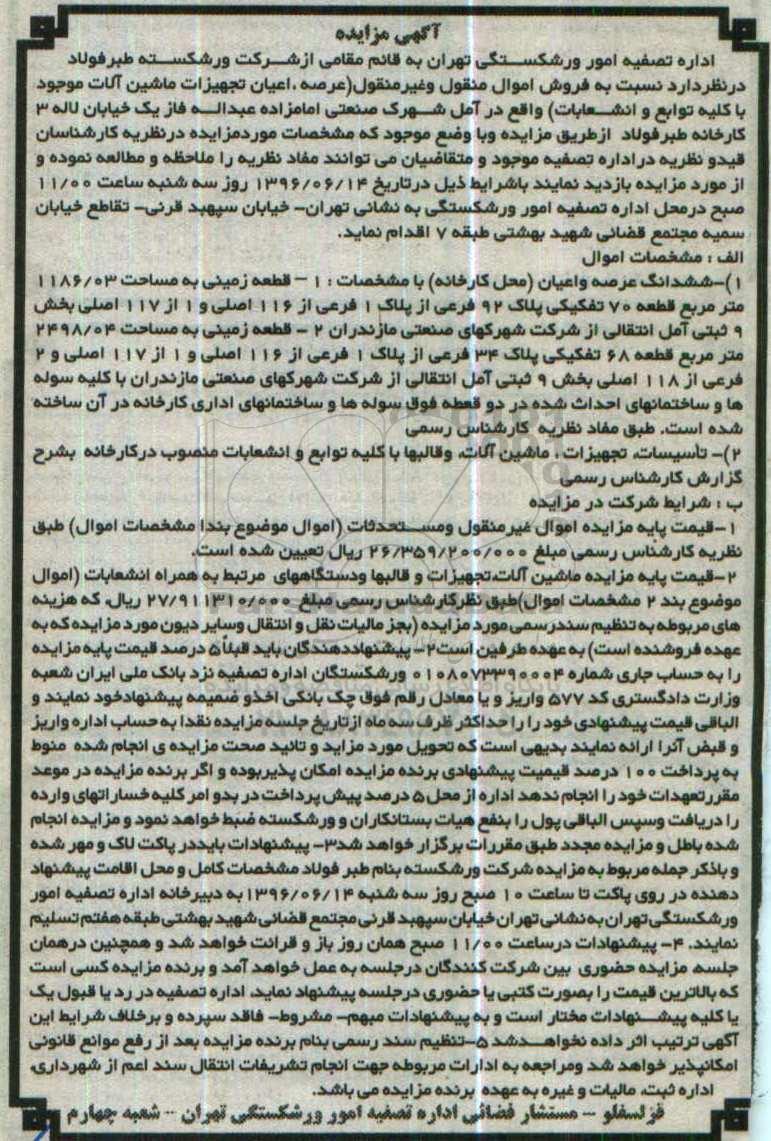 آگهی مزایده
اداره تصفیه امور ورشکستگی تهران به قائم مقامی ازشرکت ورشکسته طبرفولاد
درنظردارد نسبت به فروش اموال منقول وغیرمنقول(عرصه ،اعیان تجهیزات ماشین آلات موجود
با کلیه توابع و انشعابات) واقع در آمل شهرک صنعتی امامزاده عبداله فاز یک خیابان لاله ۳
کارخانه طبرفولاد ازطریق مزایده وبا وضع موجود که مشخصات موردمزایده درنظریه کارشناسان
قیدو نظریه دراداره تصفیه موجود و متقاضیان می توانند مفاد نظریه را ملاحظه و مطالعه نموده و
از مورد مزایده بازدید نمایند باشرایط ذیل درتاریخ ۱۳۹۶/۰۶/۱۴ روز سه شنبه ساعت ۱۱/۰۰
صبح درمحل اداره تصفیه امور ورشکستگی به نشانی تهران- خیابان سپهبد قرنی- تقاطع خیابان
سمیه مجتمع قضائی شهید بهشتی طبقه ۷ اقدام نماید.
الف : مشخصات اموال
۱)-ششدانگ عرصه واعیان (محل کارخانه) با مشخصات : ۱ – قطعه زمینی به مساحت ۱۱۸۶/۰۳
متر مربع قطعه ۷۰ تفکیکی پلاک ۹۲ فرعی از پلاک ۱ فرعی از ۱۱۶ اصلی و ۱ از ۱۱۷ اصلی بخش
۹ ثبتی آمل انتقالی از شرکت شهرکهای صنعتی مازندران ۲ – قطعه زمینی به مساحت ۲۴۹۸/۰۴
متر مربع قطعه ۶۸ تفکیکی پلاک ۳۴ فرعی از پلاک ۱ فرعی از ۱۱۶ اصلی و ۱ از ۱۱۷ اصلی و ۲
فرعی از ۱۱۸ اصلی بخش ۹ ثبتی آمل انتقالی از شرکت شهرکهای صنعتی مازندران با کلیه سوله
ها و ساختمانهای احداث شده در دو قعطه فوق سوله ها و ساختمانهای اداری کارخانه در آن ساخته
شده است. طبق مفاد نظریه کارشناس رسمی
۲)- تأسیسات، تجهیزات ، ماشین آلات، وقالبها با کلیه توابع و انشعابات منصوب درکارخانه بشرح
گزارش کارشناس رسمی
ب : شرایط شرکت در مزایده
۱-قیمت پایه مزایده اموال غیرمنقول ومستحدثات (اموال موضوع بند۱ مشخصات اموال) طبق
نظریه کارشناس رسمی مبلغ ۲۶/۳۵۹/۲۰۰/۰۰۰ ریال تعیین شده است.
۲-قیمت پایه مزایده ماشین آلات،تجهیزات و قالبها ودستگاههای مرتبط به همراه انشعابات (اموال
موضوع بند ۲ مشخصات اموال)طبق نظرکارشناس رسمی مبلغ ۲۷/۹۱۱۳۱۰/۰۰۰ ریال، که هزینه
های مربوطه به تنظیم سندرسمی مورد مزایده (بجز مالیات نقل و انتقال وسایر دیون مورد مزایده که به
عهده فروشنده است) به عهده طرفین است۲- پیشنهاددهندگان باید قبلاً ۵ درصد قیمت پایه مزایده
را به حساب جاری شماره ۰۱۰۸۰۷۳۳۹۰۰۰۴ ورشکستگان اداره تصفیه نزد بانک ملی ایران شعبه
وزارت دادگستری کد ۵۷۷ واریز و یا معادل رقم فوق چک بانکی اخذو ضمیمه پیشنهادخود نمایند و
الباقی قیمت پیشنهادی خود را را حداکثر ظرف سه ماه ازتاریخ جلسه مزایده نقدا به حساب اداره واریز
و قبض آنرا ارائه نمایند بدیهی است که تحویل مورد مزاید و تائید صحت مزایده ی انجام شده منوط
به پرداخت ۱۰۰ درصد قیمیت پیشنهادی برنده مزایده امکان پذیربوده و اگر برنده مزایده در موعد
مقررتعهدات خود را انجام ندهد اداره از محل ۵ درصد پیش پرداخت در بدو امر کلیه خساراتهای وارده
را دریافت وسپس الباقی پول را بنفع هیات بستانکاران و ورشکسته ضبط خواهد نمود و مزایده انجام
شده باطل و مزایده مجدد طبق مقررات برگزار خواهد شد۳- پیشنهادات بایددر پاکت لاک و مهر شده
و باذکر جمله مربوط به مزایده شرکت ورشکسته بنام طبر فولاد مشخصات کامل و محل اقامت پیشنهاد
دهنده در روی پاکت تا ساعت ۱۰ صبح روز سه شنبه ۱۳۹۶/۰۶/۱۴ به دبیرخانه اداره تصفیه امور
ورشکستگی تهران به نشانی تهران خیابان سپهبد قرنی مجتمع قضائی شهید بهشتی طبقه هفتم تسلیم
نمایند. ۴- پیشنهادات درساعت ۱۱/۰۰ صبح همان روز باز و قرائت خواهد شد و همچنین درهمان
جلسه، مزایده حضوری بین شرکت کنندگان درجلسه به عمل خواهد آمد و برنده مزایده کسی است
که بالاترین قیمت را بصورت کتبی یا حضوری درجلسه پیشنهاد نماید. اداره تصفیه در رد یا قبول یک
یا کلیه پیشنهادات مختار است و به پیشنهادات مبهم- مشروط- فاقد سپرده و برخلاف شرایط این
آگهی ترتیب اثر داده نخواهدشد ۵-تنظیم سند رسمی بنام برنده مزایده بعد از رفع موانع قانونی
امکانپذیر خواهد شد ومراجعه به ادارات مربوطه جهت انجام تشریفات انتقال سند اعم از شهرداری،
اداره ثبت، مالیات و غیره به عهده برنده مزایده می باشد.
قزلسفلو - مستشار قضائی اداره تصفیه امور ورشکستگی تهران - شعبه چهارم